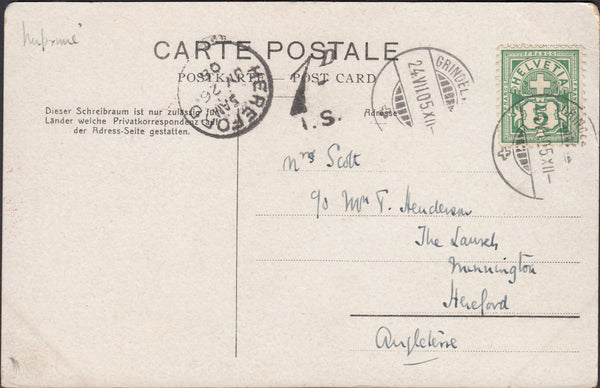 Imprimé
CARTE POSTALE
POSTKARTE — POST CARD
Dieser Schreibraum ist nur zulässig für
Länder welche Privatkorrespondenz auf
der Adress-Seite gestatten.
Adresse
HEREFO
JY 26
05
1
I.S.
GRINDEL
24.VII.05.XII-
FRANCO
HELVETIA
5
Mrs Scott
c/o Mrs T. Henderson
The Laurels
Hereford
Angleterre